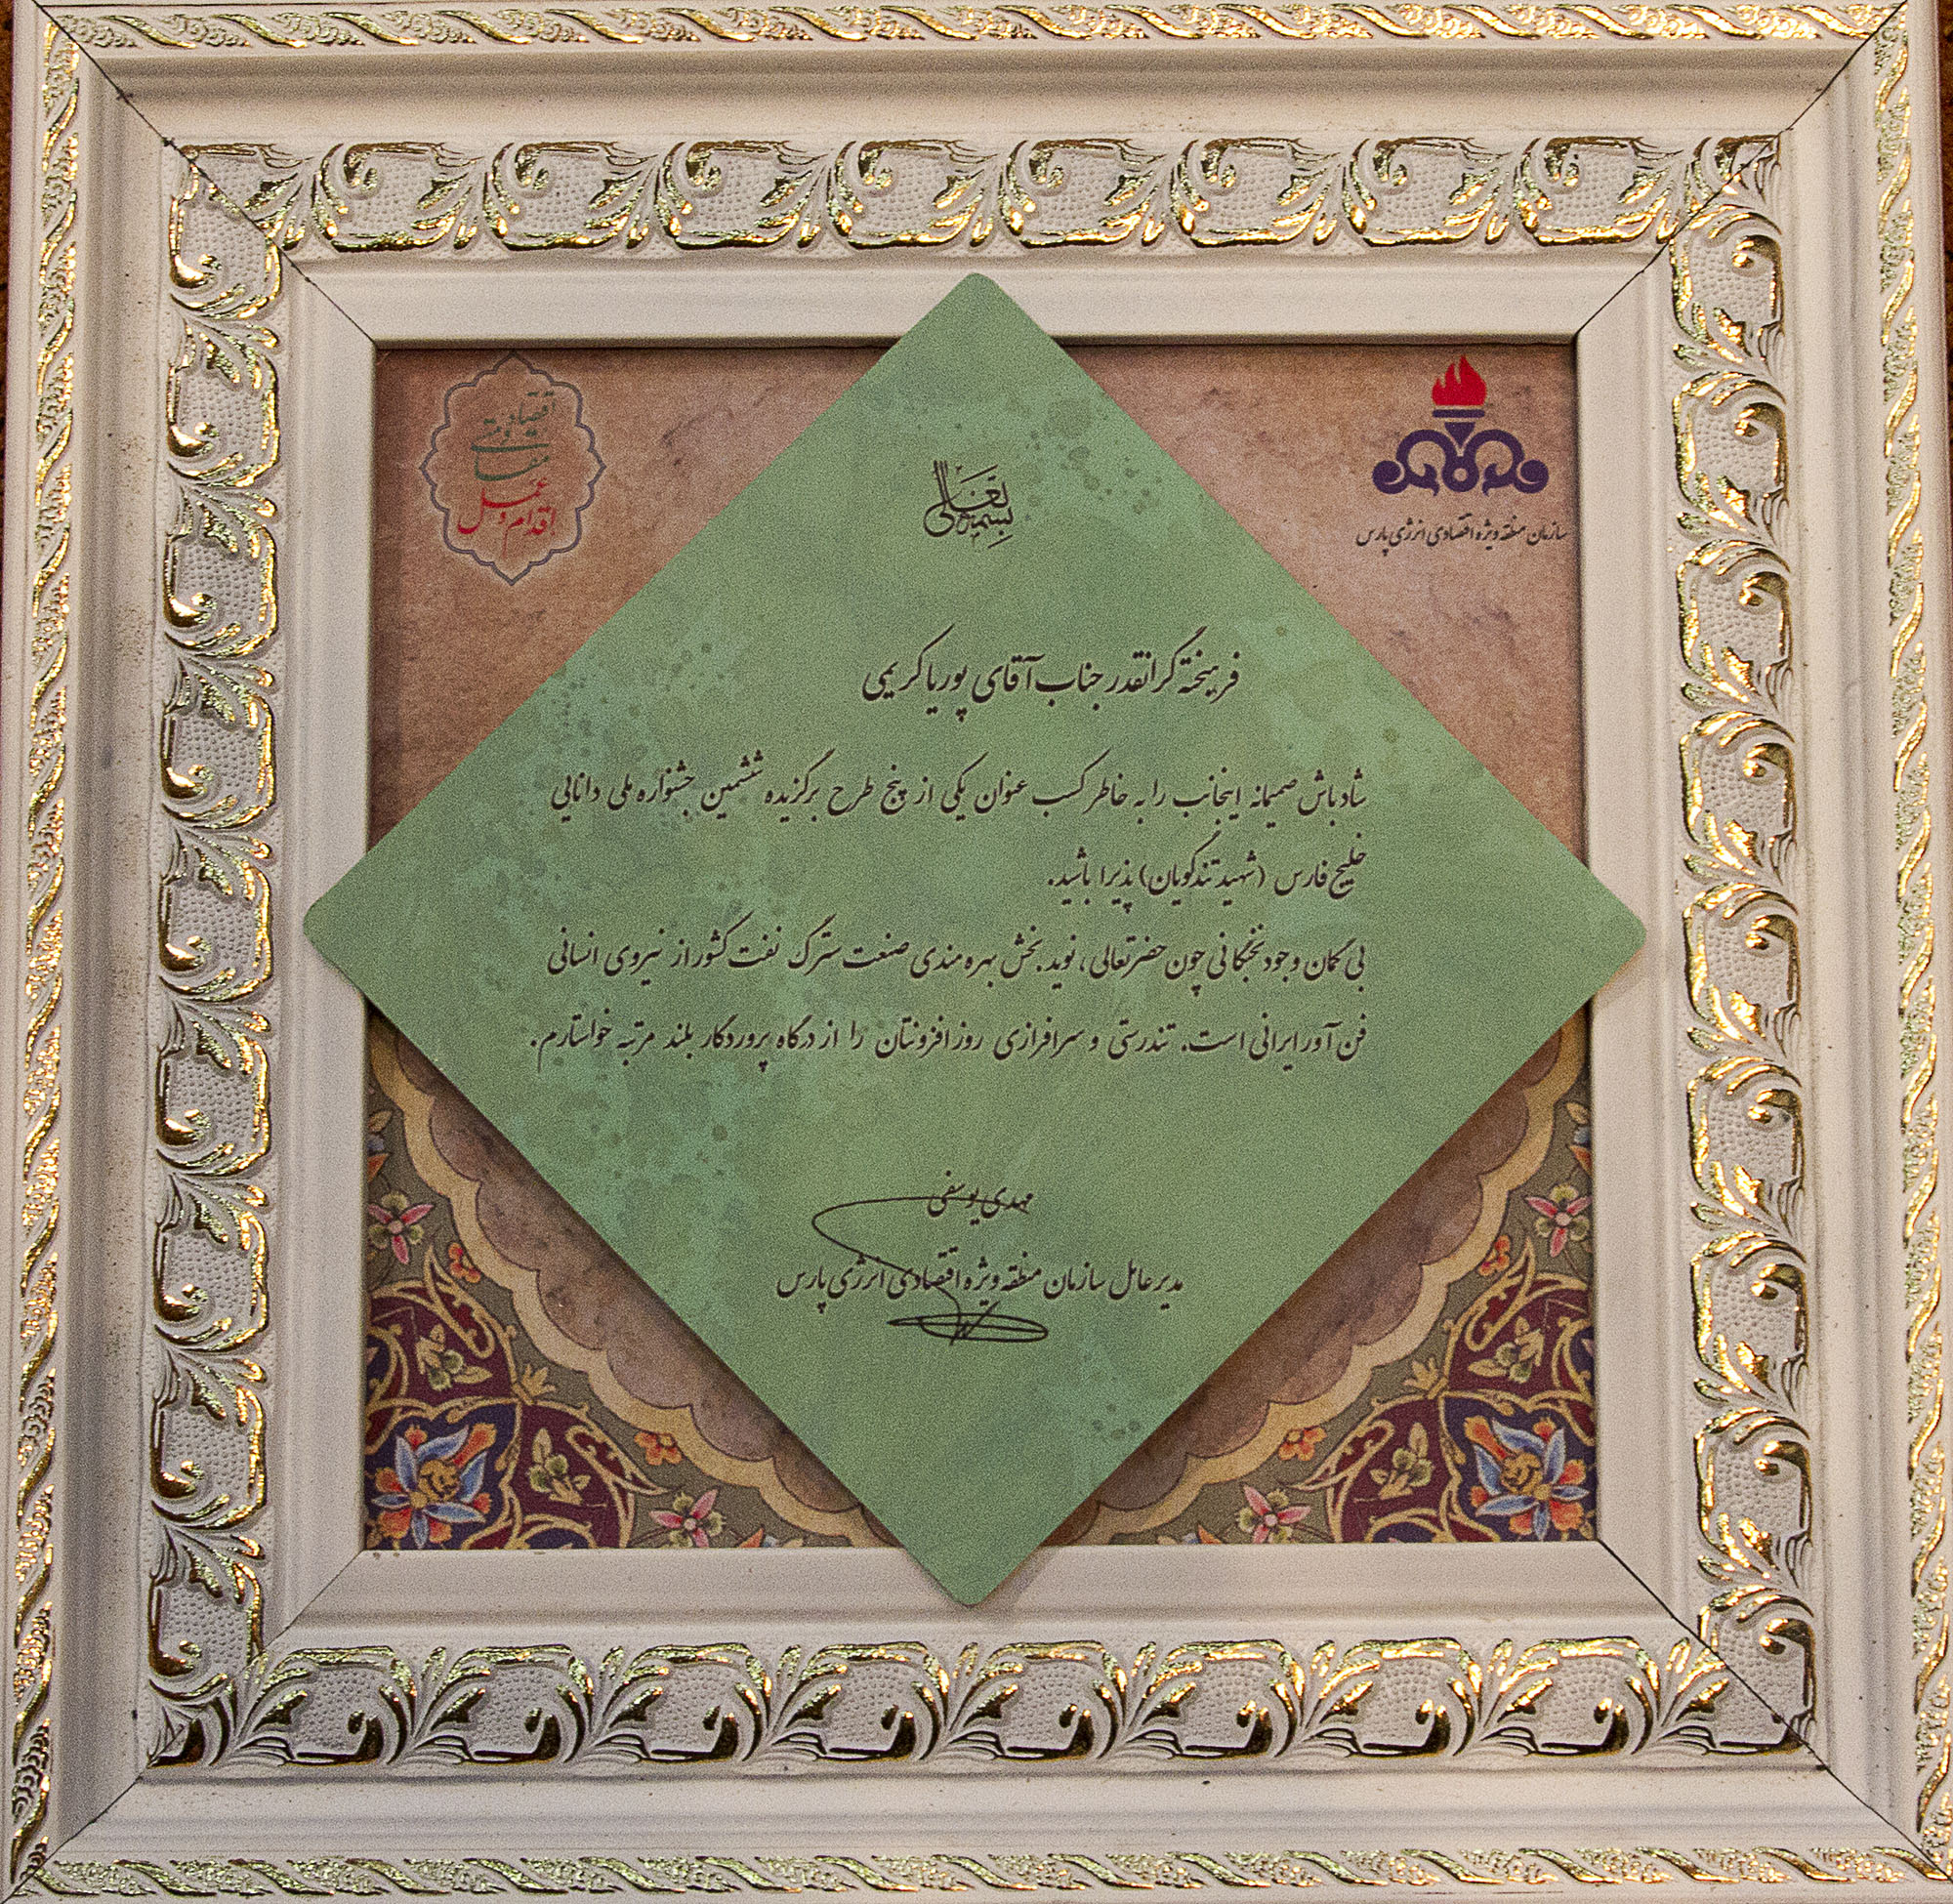 اقتصاد مقاومتی
اقدام و عمل
سازمان منطقه ویژه اقتصادی انرژی پارس
بسمه تعالی
فرهیخته گرانقدر جناب آقای پوریا کریمی
شادباش صمیمانه اینجانب را به خاطر کسب عنوان یکی از پنج طرح برگزیده ششمین جشنواره ملی دانایی
خلیج فارس (شهید تندگویان) پذیرا باشید.
بی گمان وجود نخبگانی چون حضرتعالی، نوید بخش بهره مندی صنعت سترگ نفت کشور از نیروی انسانی
فن آور ایرانی است. تندرستی و سرافرازی روز افزونتان را از درگاه پروردگار بلند مرتبه خواستارم.
مهدی یوسفی
مدیر عامل سازمان منطقه ویژه اقتصادی انرژی پارس